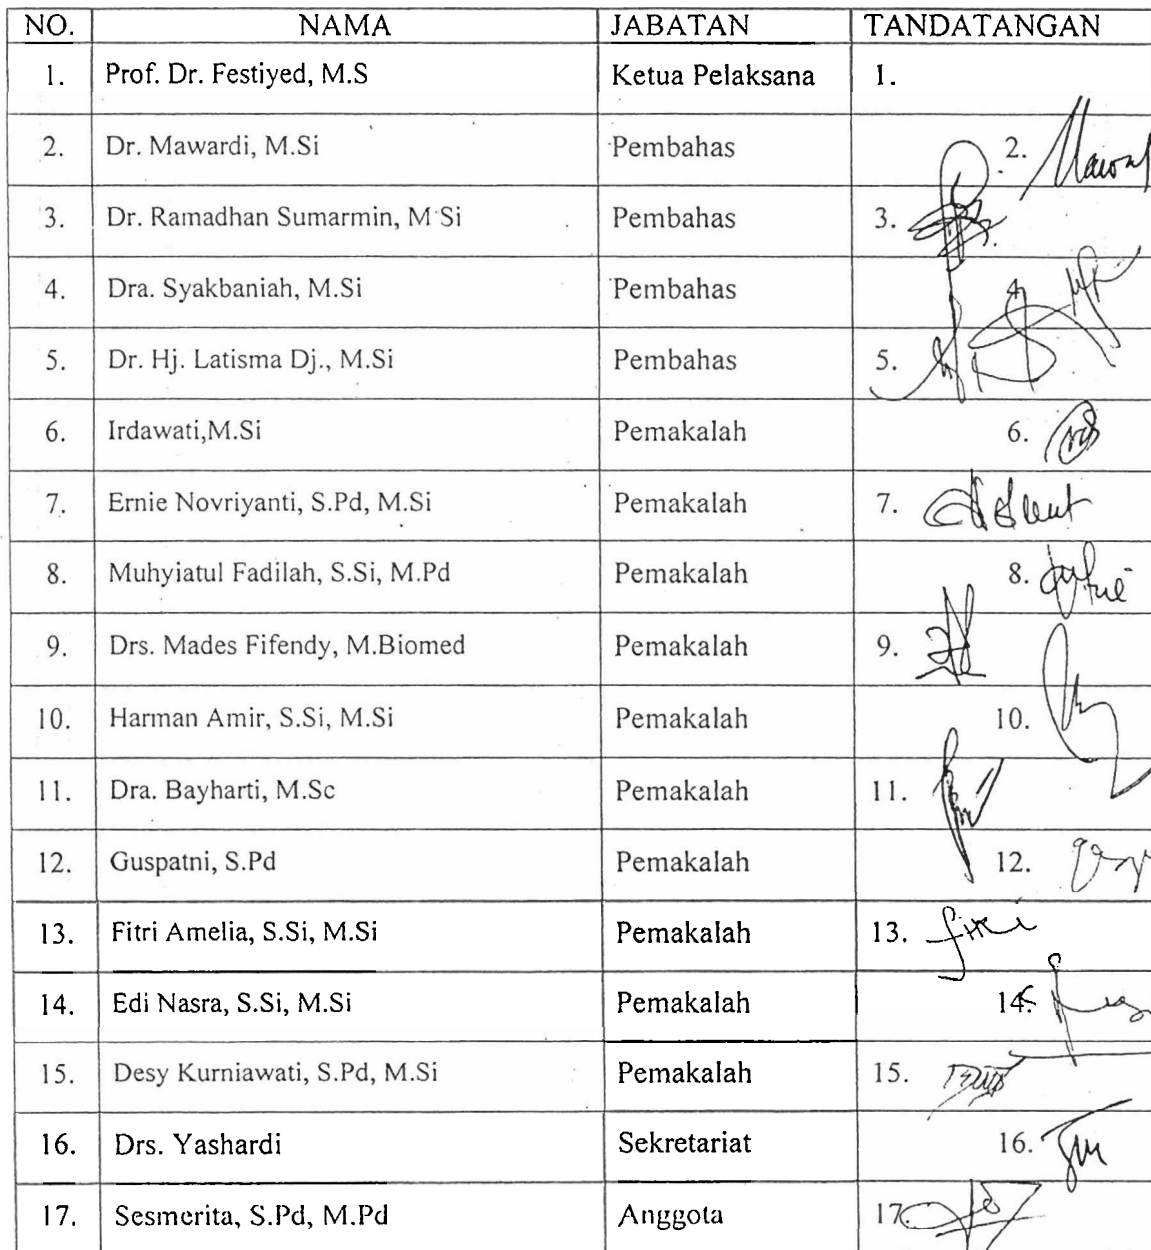 NO. NAMA JABATAN TANDATANGAN
1. Prof. Dr. Festiyed, M.S Ketua Pelaksana 1.
2. Dr. Mawardi, M.Si Pembahas 2.
3. Dr. Ramadhan Sumarmin, M Si Pembahas 3.
4. Dra. Syakbaniah, M.Si Pembahas 4.
5. Dr. Hj. Latisma Dj., M.Si Pembahas 5.
6. Irdawati,M.Si Pemakalah 6.
7. Ernie Novriyanti, S.Pd, M.Si Pemakalah 7.
8. Muhyiatul Fadilah, S.Si, M.Pd Pemakalah 8.
9. Drs. Mades Fifendy, M.Biomed Pemakalah 9.
10. Harman Amir, S.Si, M.Si Pemakalah 10.
11. Dra. Bayharti, M.Sc Pemakalah 11.
12. Guspatni, S.Pd Pemakalah 12.
13. Fitri Amelia, S.Si, M.Si Pemakalah 13. fitri
14. Edi Nasra, S.Si, M.Si Pemakalah 14.
15. Desy Kurniawati, S.Pd, M.Si Pemakalah 15.
16. Drs. Yashardi Sekretariat 16.
17. Sesmerita, S.Pd, M.Pd Anggota 17.